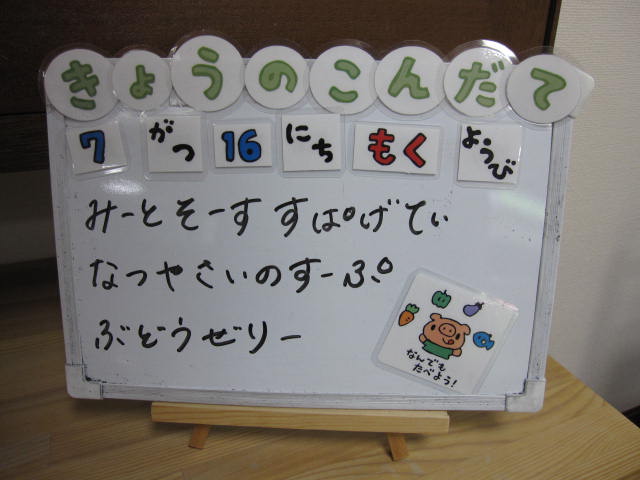 きょうのこんだて
7 がつ 16 にち もく ようび
みーとそーす すぱげてぃ
なつやさいのすーぷ
ぶどうぜりー
なんでも
たべよう!